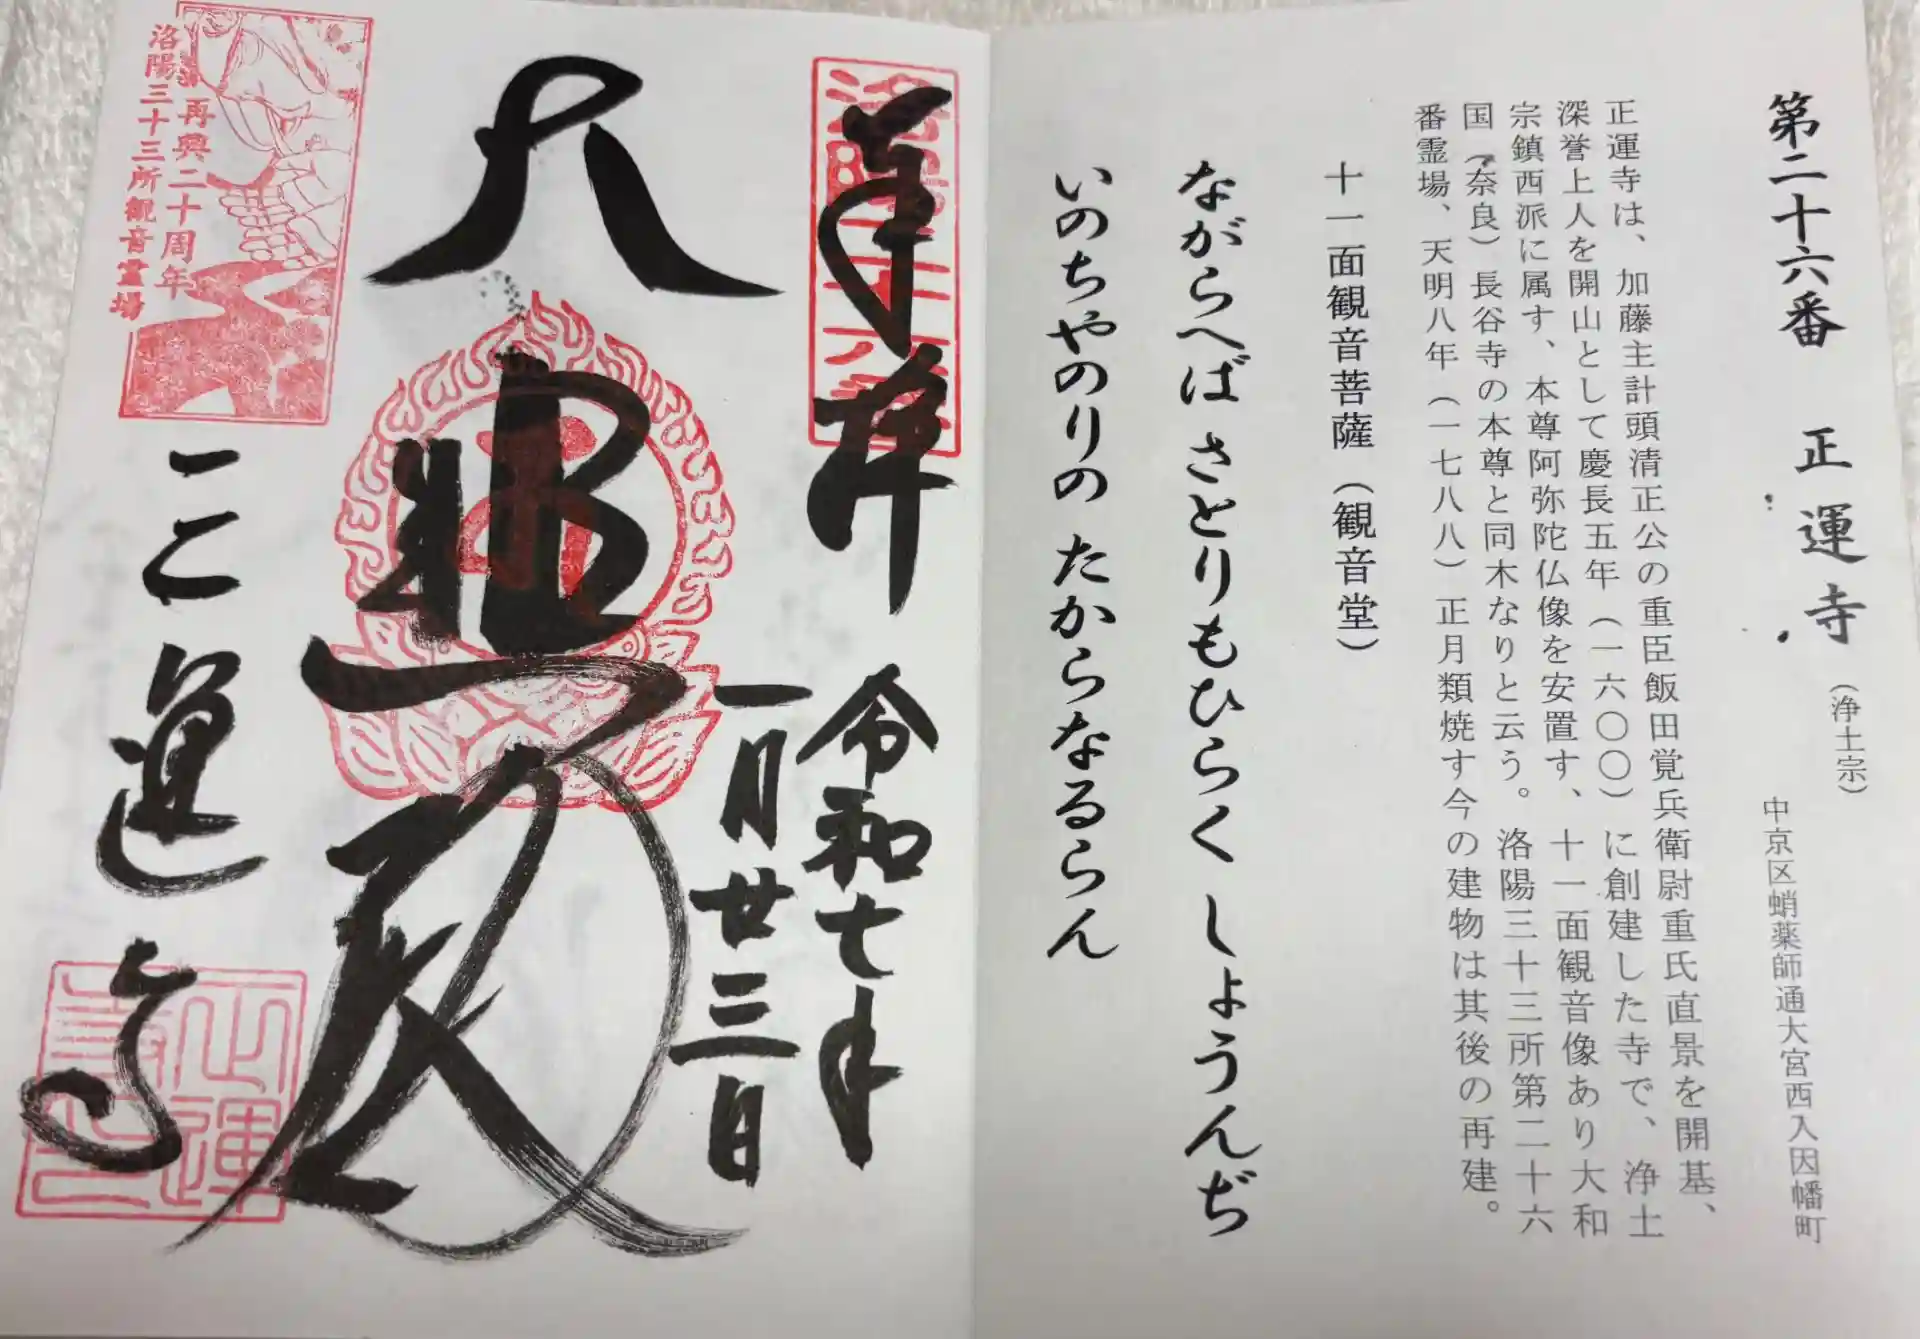 第二十六番　正運寺（浄土宗）
中京区蛸薬師通大宮西入因幡町
正運寺は、加藤主計頭清正公の重臣飯田覚兵衛尉重氏直景を開基、
深誉上人を開山として慶長五年（一六〇〇）に創建した寺で、浄土
宗鎮西派に属す、本尊阿弥陀仏像を安置す、十一面観音像あり大和
国（奈良）長谷寺の本尊と同木なりと云う。洛陽三十三所第二十六
番霊場、天明八年（一七八八）正月類焼す今の建物は其後の再建。
十一面観音菩薩（観音堂）
ながらへば さとりもひらく しょうんぢ
いのちやのりの たからなるらん
奉拝
令和七年
一月廿三日
大悲殿
正運寺
再興二十周年
洛陽三十三所観音霊場
正運寺之印